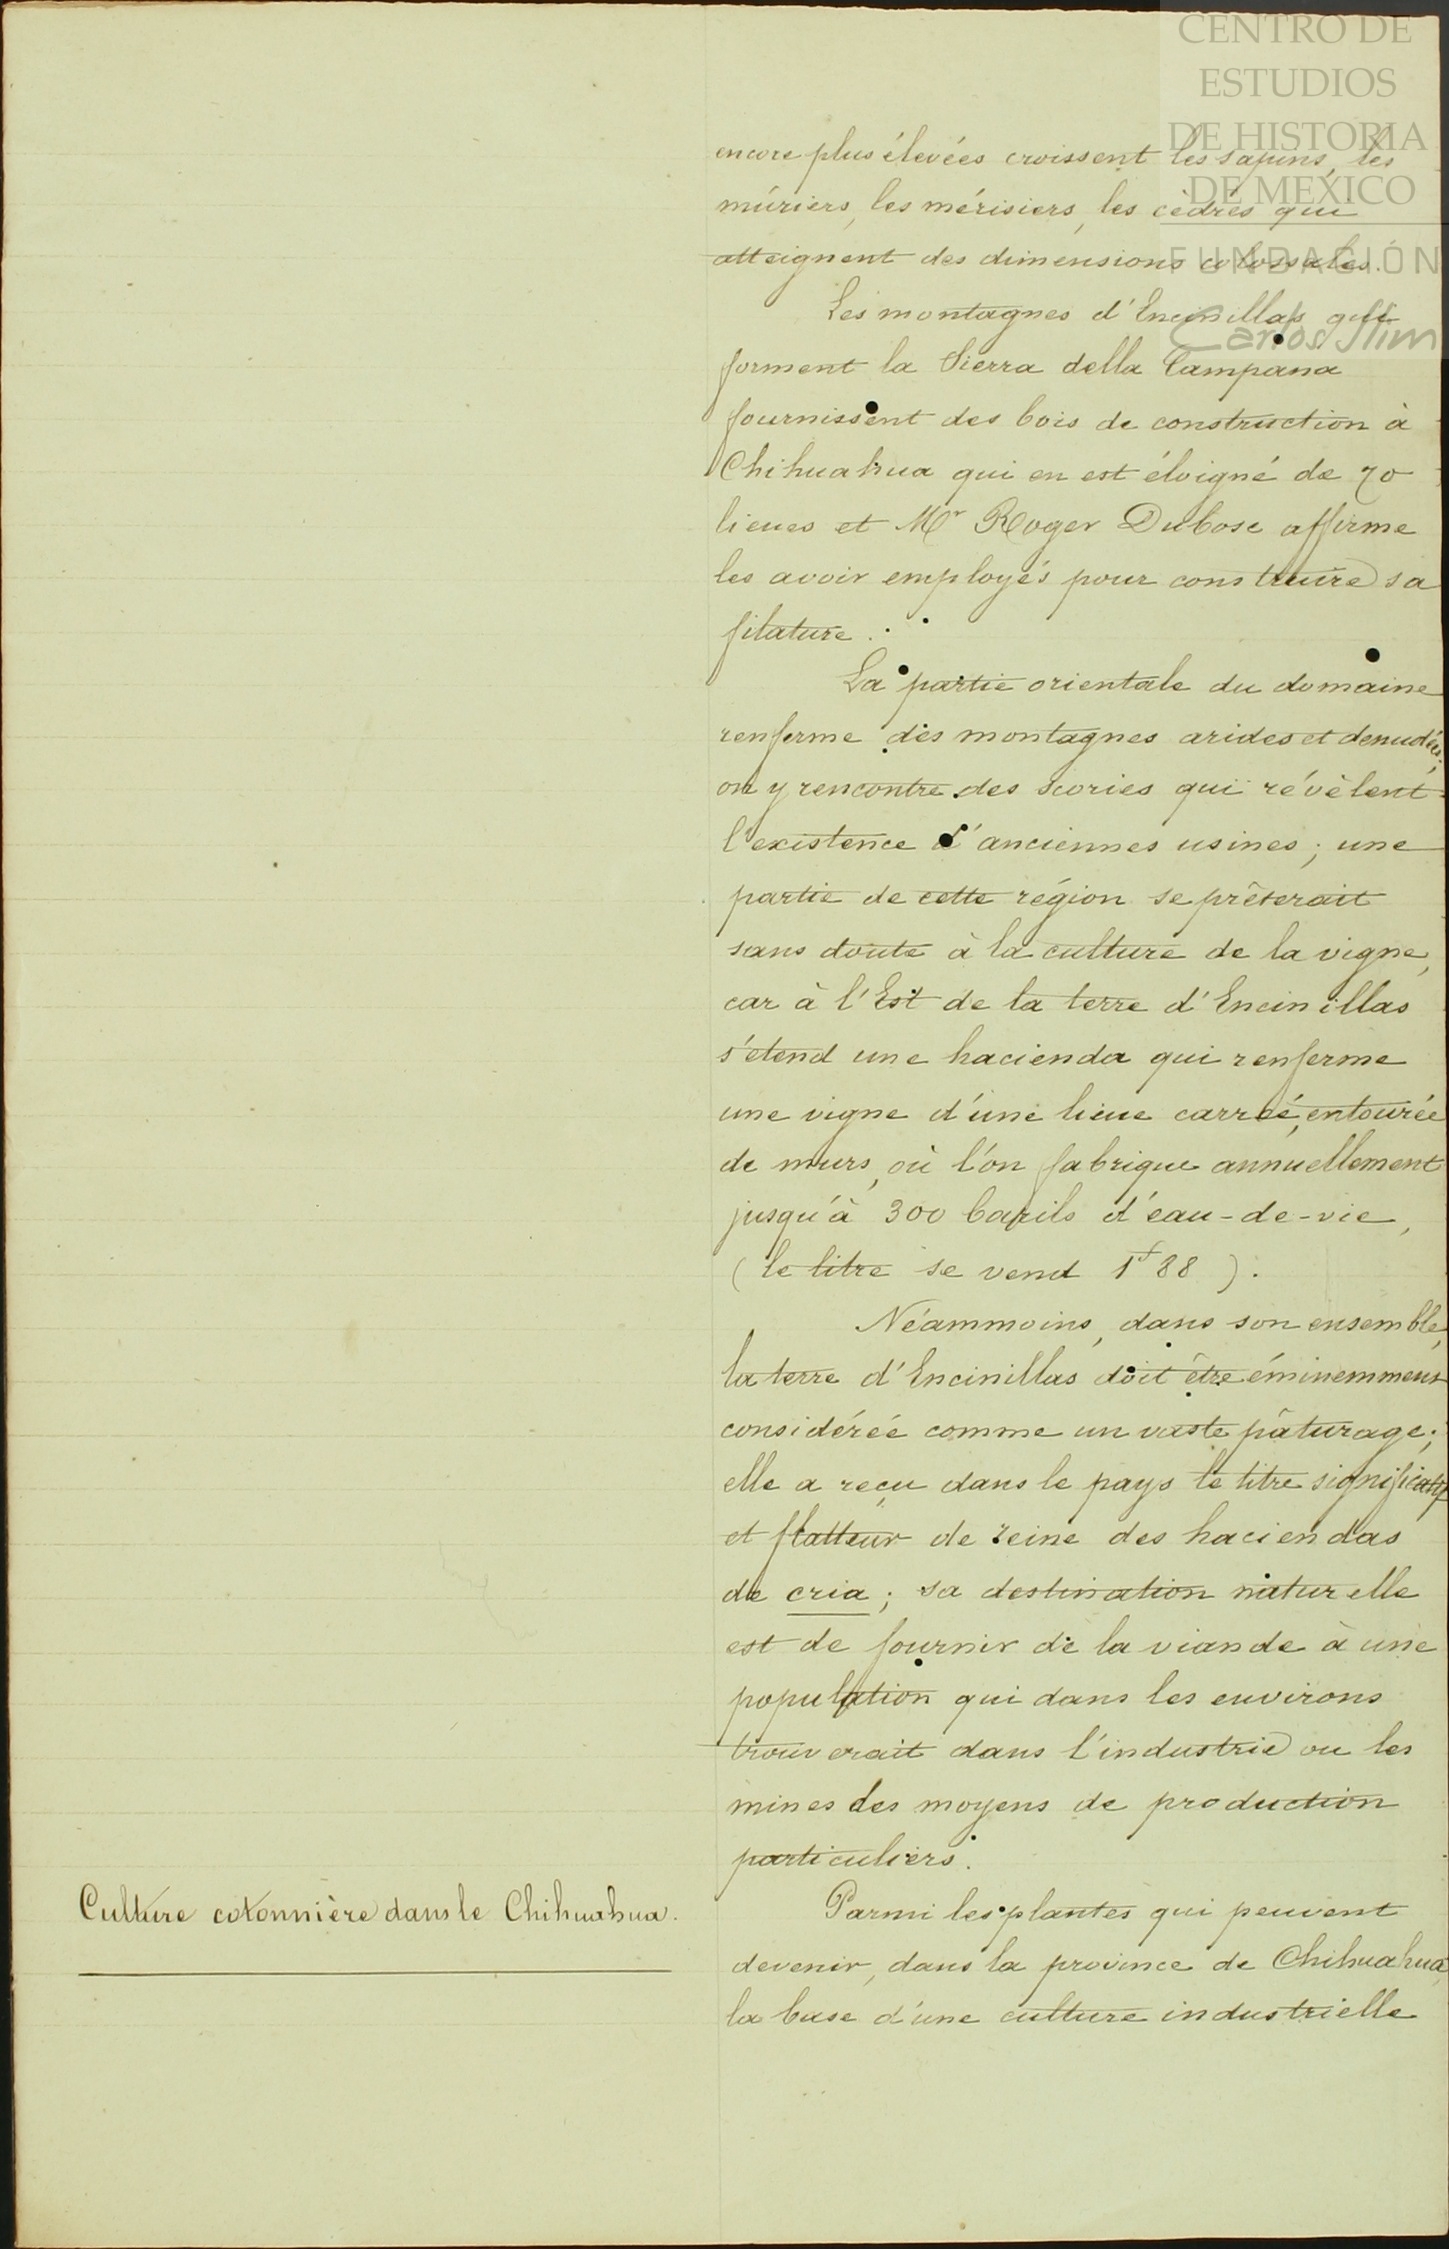 CENTRO DE
ESTUDIOS
DE HISTORIA
DE MEXICO
FUNDACIÓN
Carlos Slim
encore plus élevées croissent les sapins, les
mûriers, les mérisiers, les cèdres qui
atteignent des dimensions colossales.
Les montagnes d'Encinillas qui
forment la Sierra della Campana
fournissent des bois de construction à
Chihuahua qui en est éloigné de 70
lieues et Mr Roger Dubosc affirme
les avoir employés pour construire sa
filature.
La partie orientale du domaine
renferme des montagnes arides et denudées;
on y rencontre des scories qui révèlent
l'existence d'anciennes usines; une
partie de cette région se prêterait
sans doute à la culture de la vigne,
car à l'Est de la terre d'Encinillas
s'etend une hacienda qui renferme
une vigne d'une lieue carrée, entourée
de murs, où l'on fabrique annuellement
jusqu'à 300 barils d'eau-de-vie,
(le litre se vend 1f 88).
Néammoins, dans son ensemble,
la terre d'Encinillas doit être éminemment
considérée comme un vaste pâturage;
elle a reçu dans le pays le titre significatif
et flatteur de reine des haciendas
de cria; sa destination naturelle
est de fournir de la viande à une
population qui dans les environs
trouverait dans l'industrie ou les
mines des moyens de production
particuliers.
Culture cotonnière dans le Chihuahua.
Parmi les plantes qui peuvent
devenir, dans la province de Chihuahua,
la base d'une culture industrielle